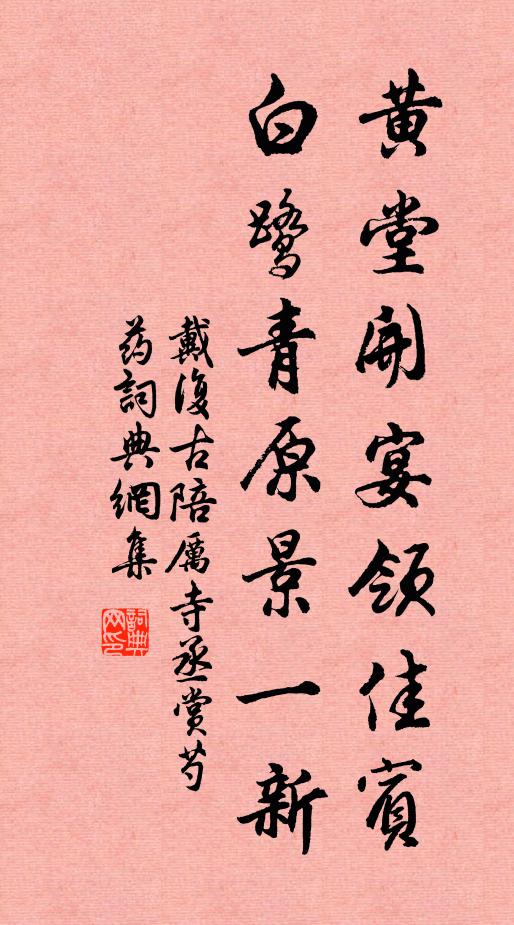 黃堂開宴領佳賓
白鹭青原景一新
戴復古陪厲寺丞賞芍
药詞典網集
詞典
网印